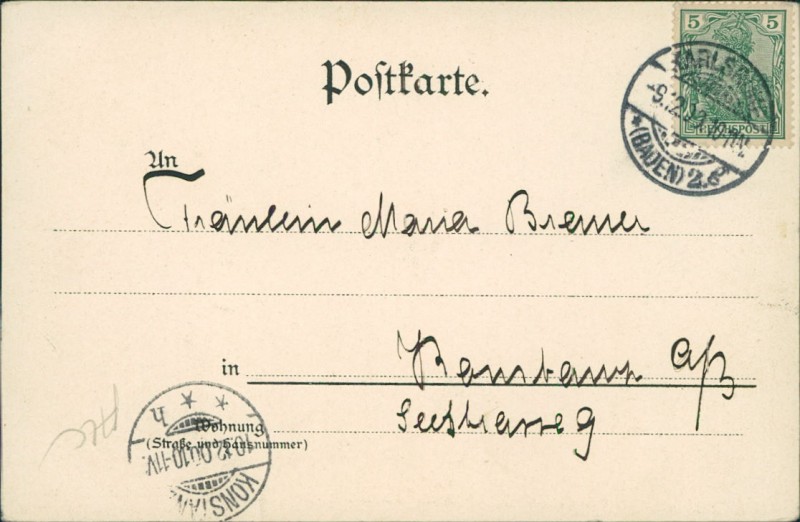 5 5
REICHSPOST
KARLSRUHE
-9.12.00.10-11V.
*(BADEN) 2.c
Postkarte.
An
Fräulein Maria Bremer
in
Konstanz a/B
Seestrasse 9
Wohnung
(Straße und Hausnummer)
* * h
10.12.00.10-11V.
KONSTANZ